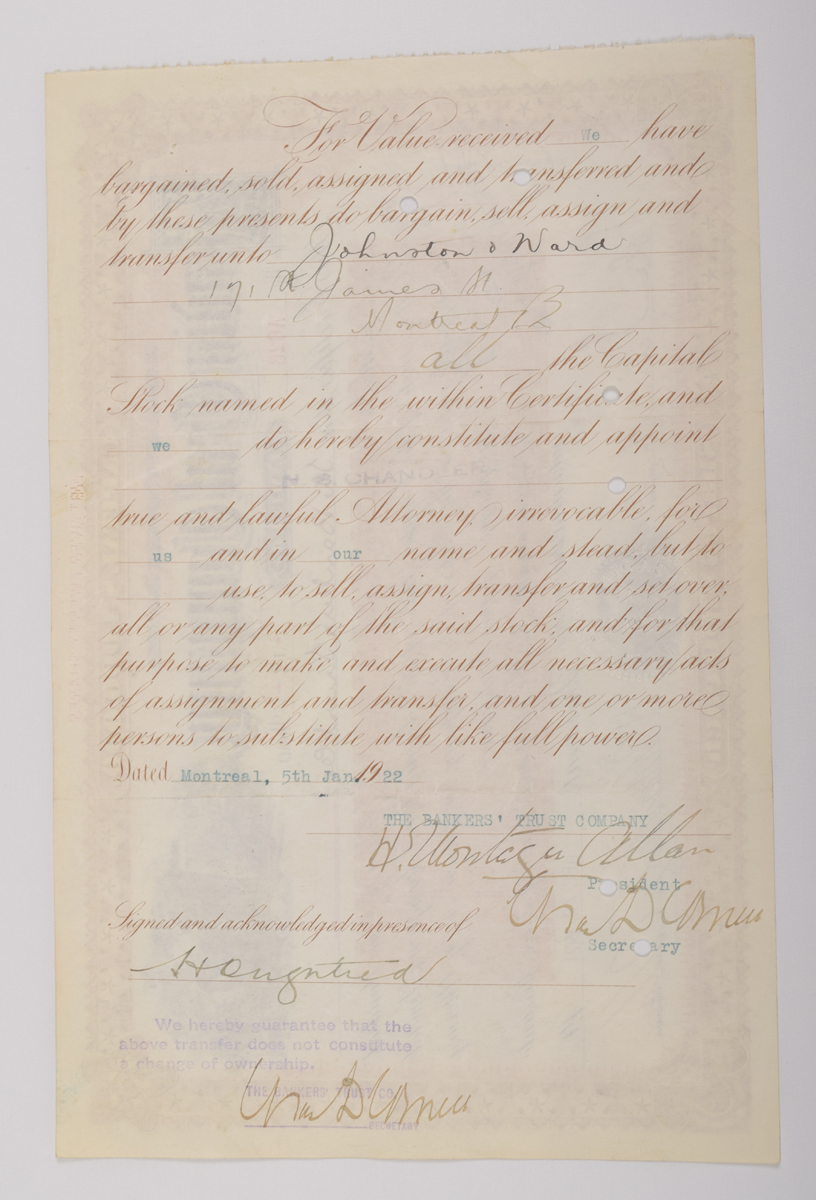 For Value received We have
bargained, sold, assigned and transferred and
by these presents do bargain, sell, assign and
transfer unto Johnston & Ward
171 St James St.
Montreal
all the Capital
Stock named in the within Certificate, and
we do hereby constitute and appoint
true and lawful Attorney, irrevocable, for
us and in our name and stead, but to
use, to sell, assign, transfer and set over,
all or any part of the said stock, and for that
purpose to make and execute all necessary acts
of assignment and transfer, and one or more
persons to substitute with like full power.
Dated Montreal, 5th Jan. 1922
THE BANKERS' TRUST COMPANY
H. Montagu Allan
President
Secretary
Signed and acknowledged in presence of
We hereby guarantee that the
above transfer does not constitute
a change of ownership.
THE BANKERS' TRUST CO.
SECRETARY